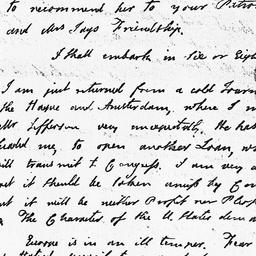 to recommend her to your Patron
and Mrs Jays Friendship.
I shall embark in six or Eigh
I am just returned from a cold Journ
the Hague and Amsterdam, where I m
Mr Jefferson very unexpectedly. He has
me to open another Loan, w
will transmit to Congress. I am very a
it should be taken amiss by Con
it will be neither Profit nor Pl
The Character of the U. States dem
Europe is in an ill temper. Fear